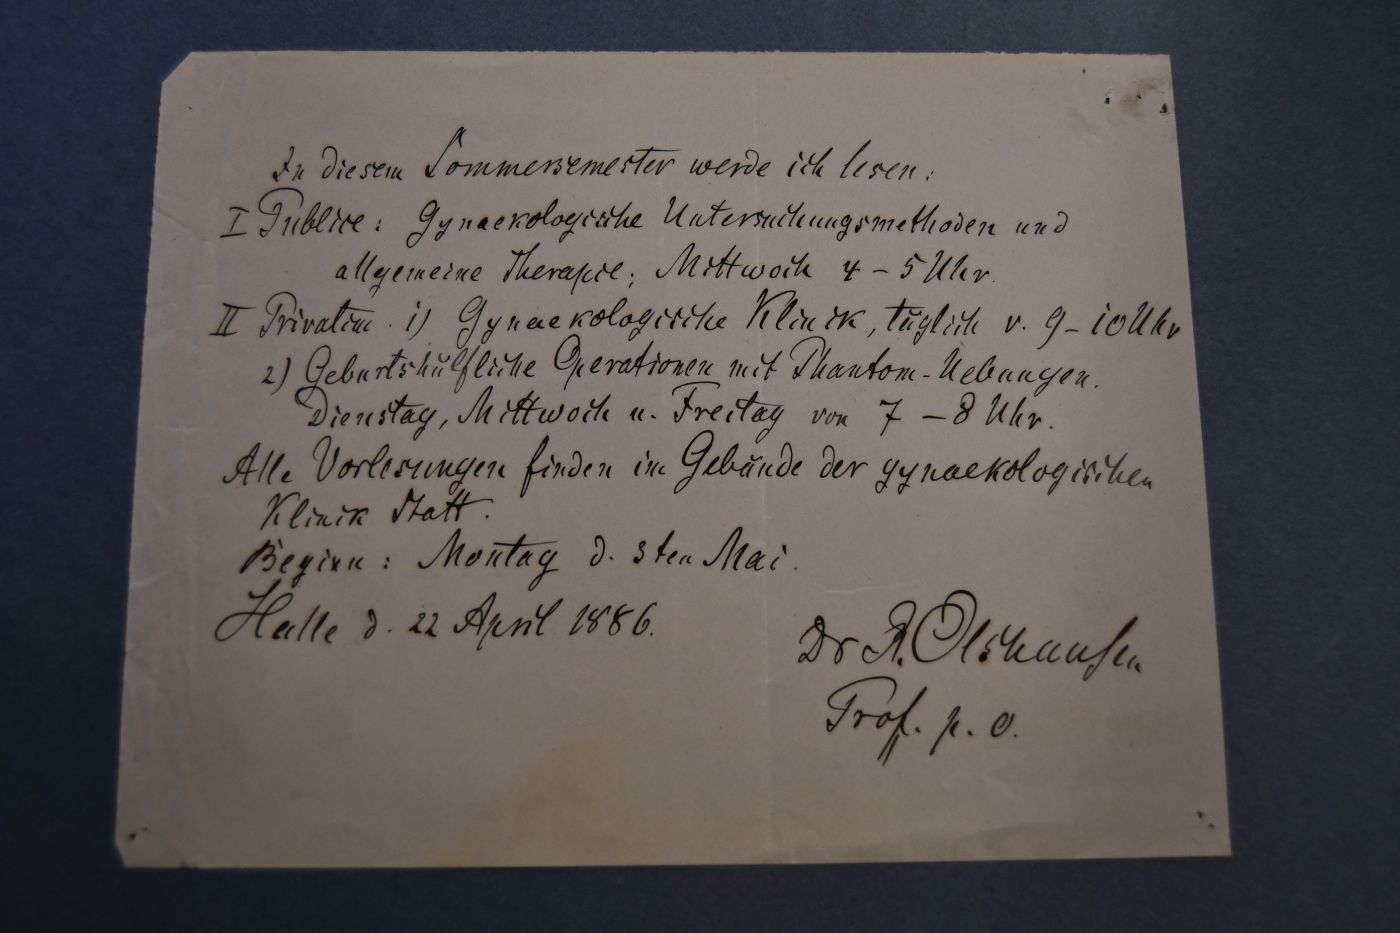 In diesem Sommersemester werde ich lesen:
I Publice: Gynaekologische Untersuchungsmethoden und
allgemeine Therapie; Mittwoch 4 – 5 Uhr.
II Privatim. 1) Gynaekologische Klinik, täglich v. 9 – 10 Uhr
2) Geburtshülfliche Operationen mit Phantom-Uebungen.
Dienstag, Mittwoch u. Freitag von 7 – 8 Uhr.
Alle Vorlesungen finden im Gebäude der gynaekologischen
Klinik Statt.
Beginn: Montag d. 3ten Mai.
Halle d. 22 April 1886.
Dr R. Olshausen
Prof. p. o.